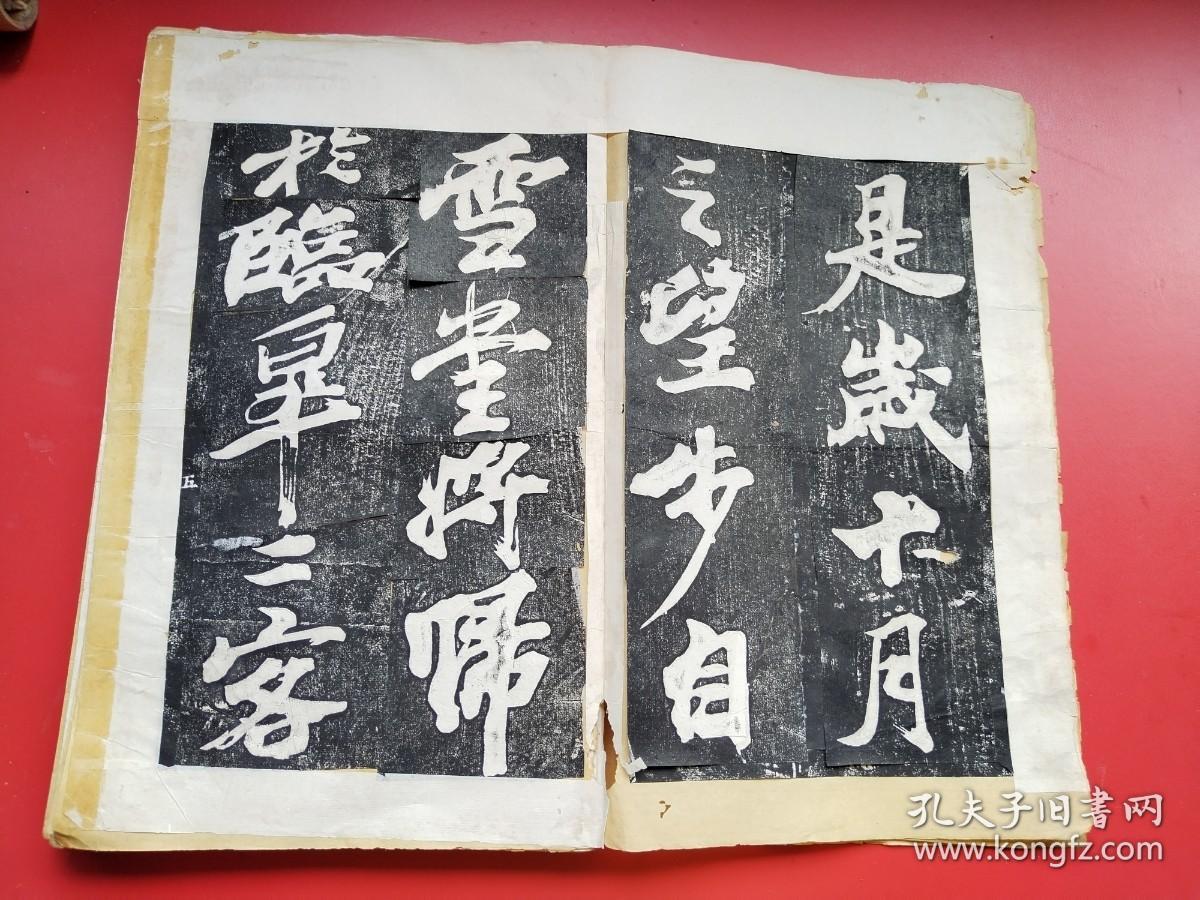 是歲十月
之望步自
雪堂將歸
於臨皋二客
五
孔夫子旧書网
www.kongfz.com